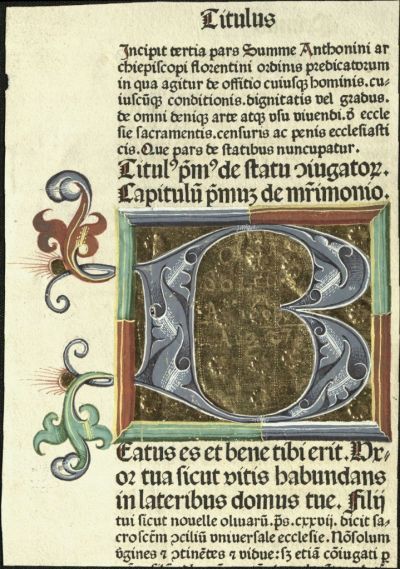 Titulus
Incipit tertia pars Summe Anthonini ar
chiepiscopi florentini ordinis predicatorum
in qua agitur de offitio cuiusqꝫ hominis. cu-
iuscūqꝫ conditionis. dignitatis vel gradus.
de omni deniqꝫ arte atqꝫ vsu viuendi. ꝺ̄ eccle
sie sacramentis. censuris ac penis ecclesiasti
cis. Que pars de statibus nuncupatur.
Titulꝰ pͥmꝰ de statu ↄiugatoꝝ.
Capitulū pͥmuꝫ de mr̄imonio.
B
Eatus es et bene tibi erit. Vx-
or tua sicut vitis habundans
in lateribus domus tue. Filij
tui sicut nouelle oliuaꝝ. ps. cxxvij. dicit sa-
croscēm ↄciliū vniuersale ecclesie. Nōsolum
v̓gines ⁊ ↄtinētes ⁊ vidue: sꝫ etiā cōiugati ꝑ